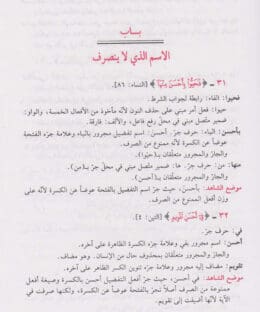 بـــاب
الاسم الذي لا ينصرف
٣١ ـ ﴿ فَحَيُّوا بِأَحْسَنَ مِنْهَا ﴾ [النساء: ٨٦].
فحيوا: الفاء: رابطة لجواب الشرط.
حيوا: فعل أمر مبني على حذف النون لأنه مأخوذ من الأفعال الخمسة، والواو:
ضمير متصل مبني في محل رفع فاعل، والألف: فارقة.
بأحسن: الباء: حرف جرّ. أحسن: اسم مجرور بالباء وعلامة جرّه الفتحة
عوضاً عن الكسرة لأنه ممنوع من الصرف.
والجار والمجرور متعلقان بـ(حيّوا).
منها: من: حرف جر. ها: ضمير متصل مبني في محل جرّ بـ(من).
موضع الشاهد: بأحسنَ، حيث جرّ اسم التفضيل بالفتحة عوضاً عن الكسرة لأنه على
وزن أفعل الممنوع من الصرف.
٣٢ ـ ﴿ فِي أَحْسَنِ تَقْوِيمٍ ﴾ [التين: ٤].
في: حرف جرّ.
أحسن: اسم مجرور بفي وعلامة جرّه الكسرة الظاهرة على آخره.
والجار والمجرور متعلقان بمحذوف حال من الإنسان. وهو مضاف.
تقويم: مضاف إليه مجرور وعلامة جرّه تنوين الكسر الظاهر على آخره.
موضع الشاهد: في أحسنِ، حيث جرّ اسم التفضيل أحسن بالكسرة وصيغة أفعل
ممنوع من الصرف أصلاً تجرّ بالفتحة عوضاً عن الكسرة، ولكنها صرفت في
الآية لأنها أضيفت إلى تقويم.